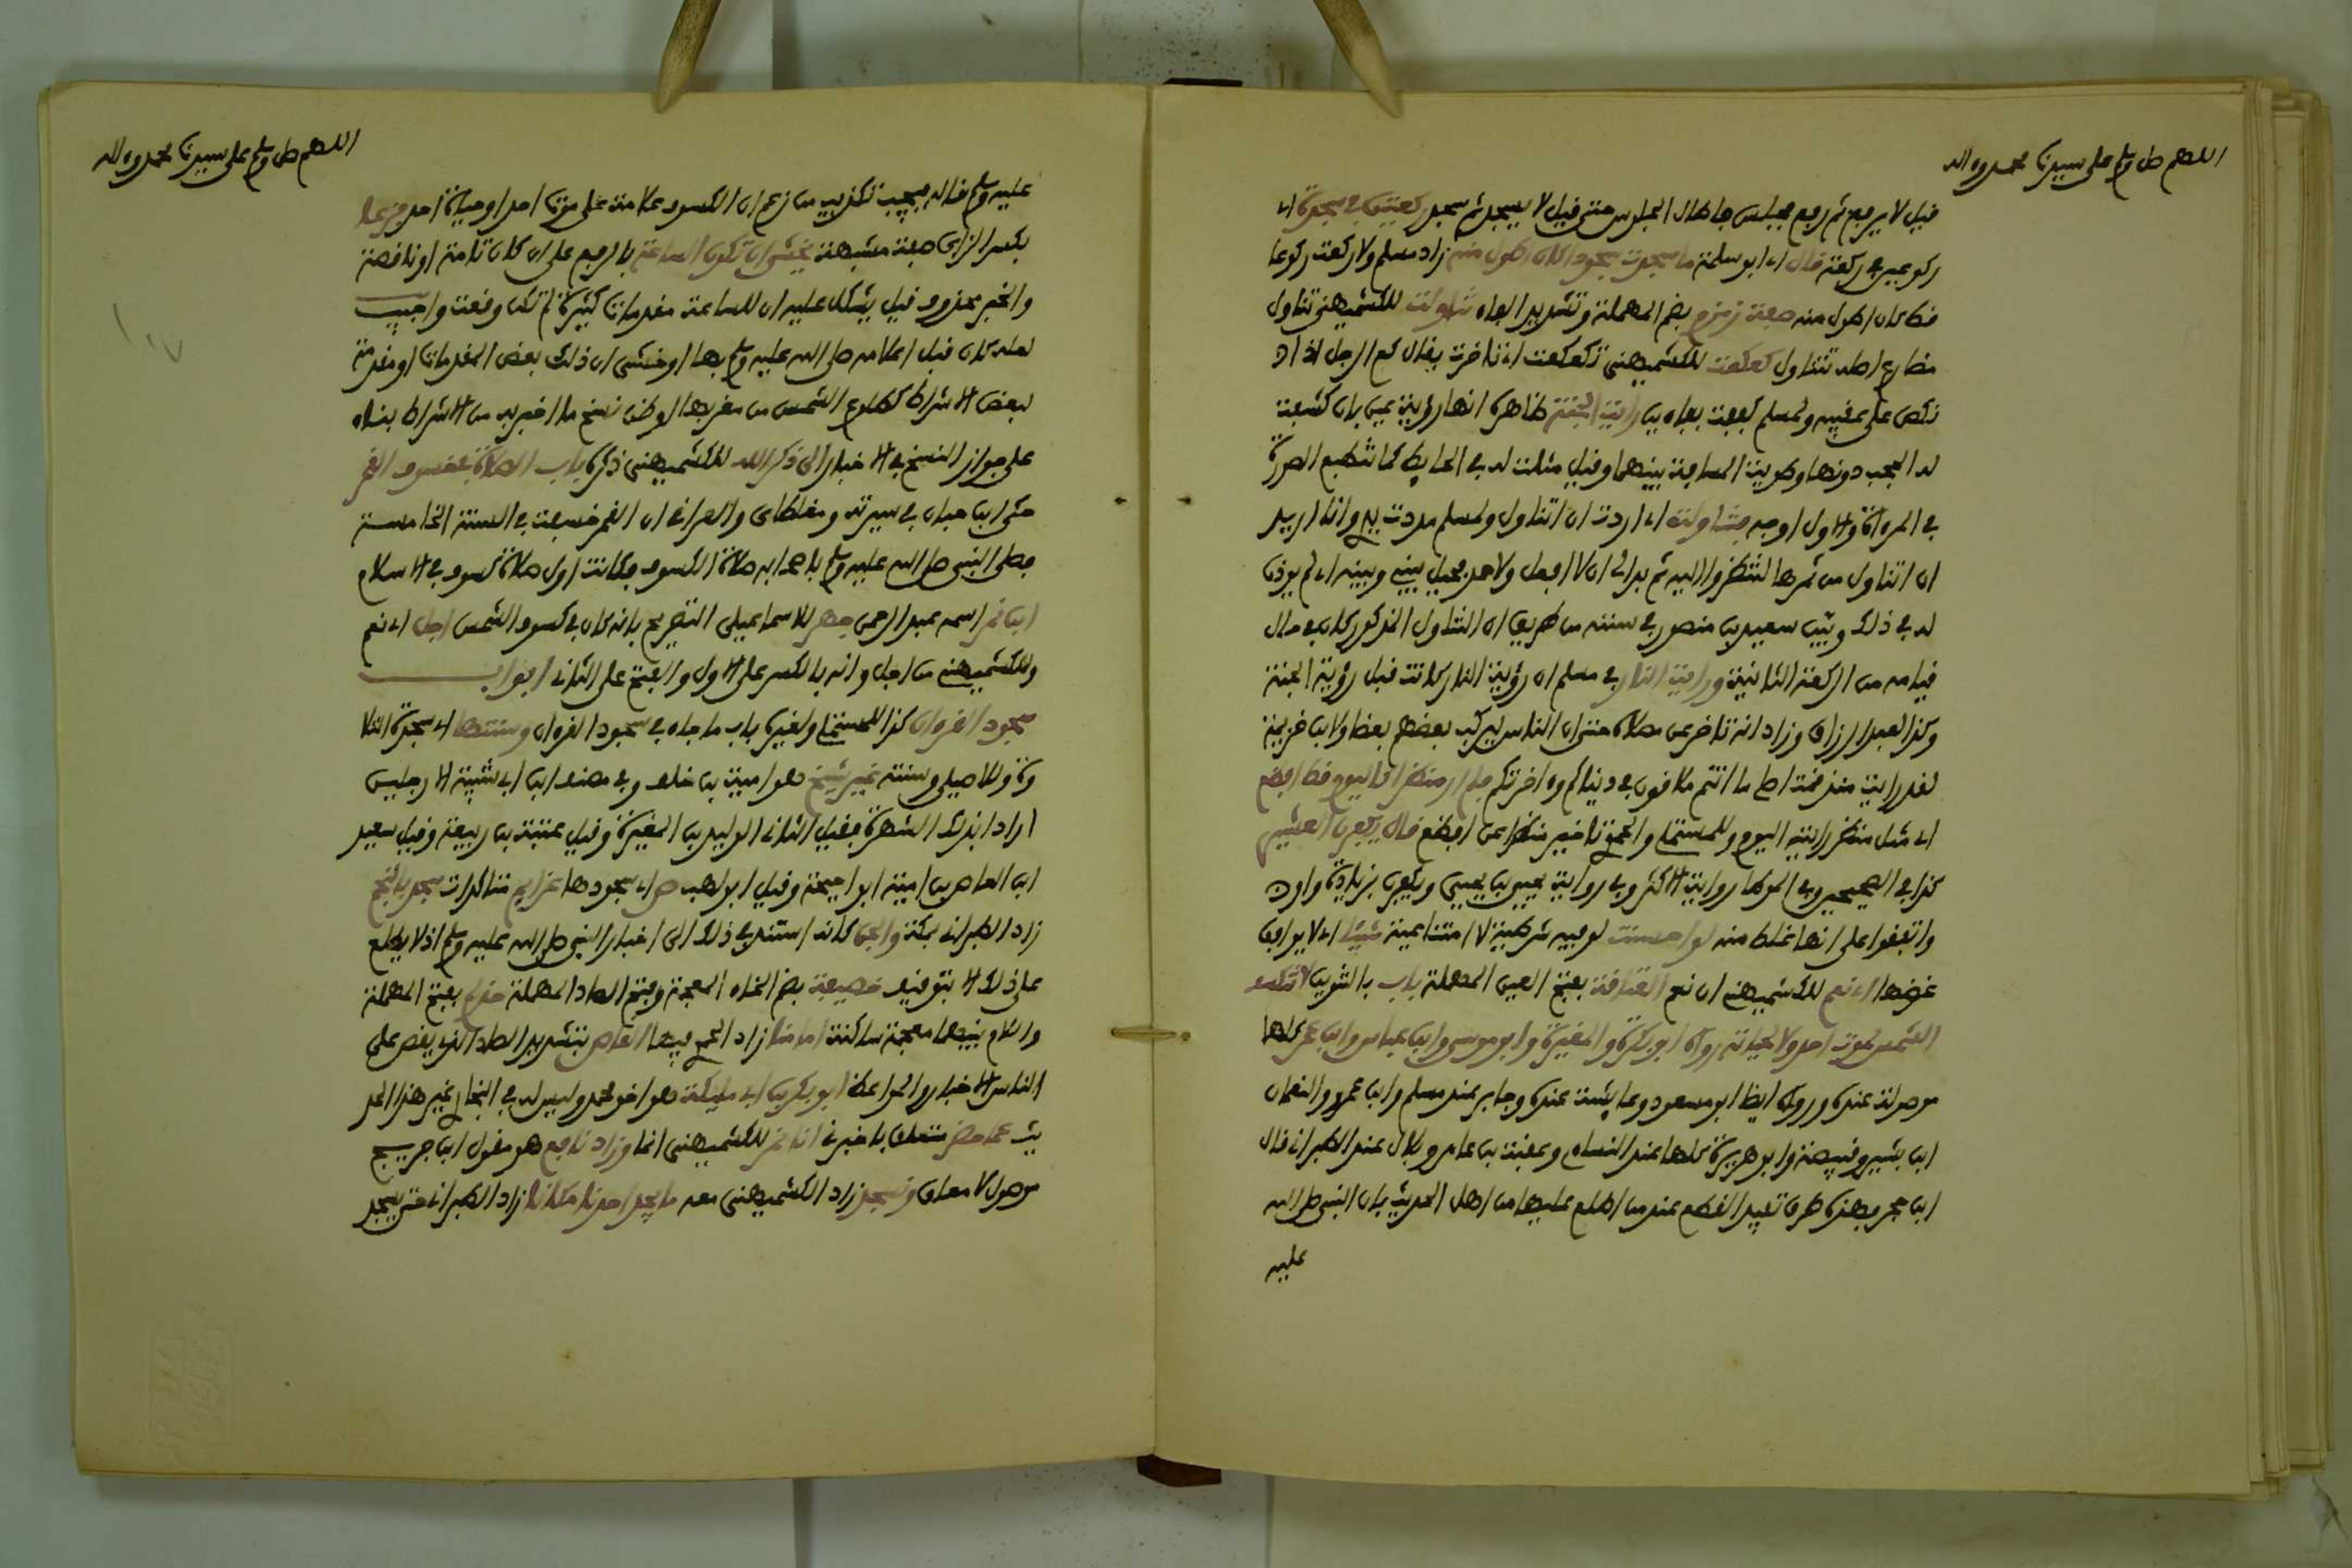 اللهم صل وسلم على سيدنا محمد وءاله
قيل لا يرفع ثم رفع فجلس فأطال الجلوس حتى قيل لا يسجد ثم سجد ركعتين في سجدة اي
ركوعين في ركعة قال اي ابو سلمة ما سجدت سجودا كان اطول منه زاد مسلم ولا ركعت ركوعا
قط كان اطول منه صفة زمزم بضم المهملة وتشديد الفاء تناولت للكشميهني تناول
مضارع اصله تتناول كعكعت للكشميهني تكعكعت اي تاخرت يقال كع الرجل اذا
نكص على عقبيه ولمسلم كففت بفاءين رأيت الجنة ظاهره انها رؤية عين بان كشفت
له الحجب دونها وطويت المسافة بينهما وقيل مثلت له في الحايط كما تنطبع الصورة
في المرءاة والاول اوجه فتناولت اي اردت ان اتناول ولمسلم مددت يدي وانا اريد
ان اتناول من ثمرها لتنظروا اليه ثم بدا لي ان لا افعل ولاحمد فحيل بيني وبينه اي لم يوذن
له في ذلك وبين سعيد بن منصور في سننه من طريق ان التناول المذكور كان في حال
قيامه من الركعة الثانية ورايت النار في مسلم ان رؤية النار كانت قبل رؤية الجنة
وكذا لعبد الرزاق وزاد انه تاخر عن مصلاه حتى ان الناس ليركب بعضهم بعضا ولابن خزيمة
لقد رايت منذ قمت اصلي ما انتم ملاقون في دنياكم وءاخرتكم فلم ار منظرا كاليوم قط افظع
اي مثل منظر رايته اليوم وللمستملي والحموي تاخير منظرا عن افظع قال يكفرن العشير
كذا في الصحيحين وفي الموطا رواية الاكثر وفي رواية يحيى بن يحيى ويكفرن بزيادة واو
واتفقوا على انها غلط منه لو احسنت لو فيه شرطية لا امتناعية شيئا اي لا يوافق
غرضها اي نعم للكشميهني ان نعم العتاقة بفتح العين المهملة باب بالتنوين لا تنكسف
الشمس لموت احد ولا لحياته رواه ابو بكرة والمغيرة وابو موسى وابن عباس وابن عمر كلها
موصولة عنده ورواه ايضا ابو مسعود وعايشة عنده وجابر عند مسلم وابن عمرو والنعمان
ابن بشير وقبيصة وابو هريرة كلها عند النساءي وعقبة بن عامر وبلال عند الطبراني قال
ابن حجر فهذه طرق تفيد القطع عند من اطلع عليها من اهل الحديث بان النبي صلى الله
عليه
اللهم صل وسلم على سيدنا محمد وءاله
عليه وسلم قاله فيجب تكذيب من زعم ان الكسوف علامة على موت احد او حياة احد فزعا
بكسر الزاي صفة مشبهة يخشى ان تكون الساعة بالرفع على ان كان تامة او ناقصة
والخبر محذوف قيل يشكل عليه ان للساعة مقدمات كثيرة لم تكن وقعت واجيب
لعله كان قبل اعلامه صلى الله عليه وسلم بها او خشي ان ذلك بعض المقدمات او مقدمة
لبعض الاشراط كطلوع الشمس من مغربها او ظن نسخ ما اخبر به من الاشراط بناء
على جواز النسخ في الاخبار الى ذكر الله للكشميهني ذكره باب الصلاة في خسوف القمر
حكى ابن حبان في سيرته ومغلطاي والعراقي ان القمر خسف في السنة الخامسة
فصلى النبي صلى الله عليه وسلم باصحابه صلاة الكسوف فكانت اول صلاة كسوف في الاسلام
ابن نمر اسمه عبد الرحمن جهر للاسماعيلي التصريح بانه كان في كسوف الشمس اجل اي نعم
وللكشميهني من اجل وانه بالكسر على الاول والفتح على الثاني ابواب
سجود القرءان كذا للمستملي ولغيره باب ما جاء في سجود القرءان وسنتها اي سجدة التلا
وة وللاصيلي وسنته غير شيخ هو امية بن خلف وفي مصنف ابن ابي شيبة الا رجلين
ارادا بذلك الشهرة فقيل الثاني الوليد بن المغيرة وقيل عتبة بن ربيعة وقيل سعيد
ابن العاص بن امية ابو احيحة وقيل ابو لهب ص اي سجودها عزايم متاكدات سجد بالنجم
زاد الطبراني بمكة والجن كانه استند في ذلك الى اخبار النبي صلى الله عليه وسلم اذ لا يطلع
على ذلك الا بتوقيف خصيفة بضم الخاء المعجمة وفتح الصاد المهملة بفتح المهملة
والثاء بينهما معجمة ساكنة امامنا زاد الحموي فيها القاص بتشديد الصاد الذي يقص على
الناس الاخبار والمواعظ ابو بكر بن ابي مليكة هو اخو محمد وليس له في البخاري غير هذا الحد
يث عما حضر متعلق باخبرني انا نمر للكشميهني انما وزاد نافع هو مقول ابن جريج
موصول لا معلق ونسجد زاد الكشميهني معه ما يجد احدنا مكانا زاد الطبراني حتى يسجد